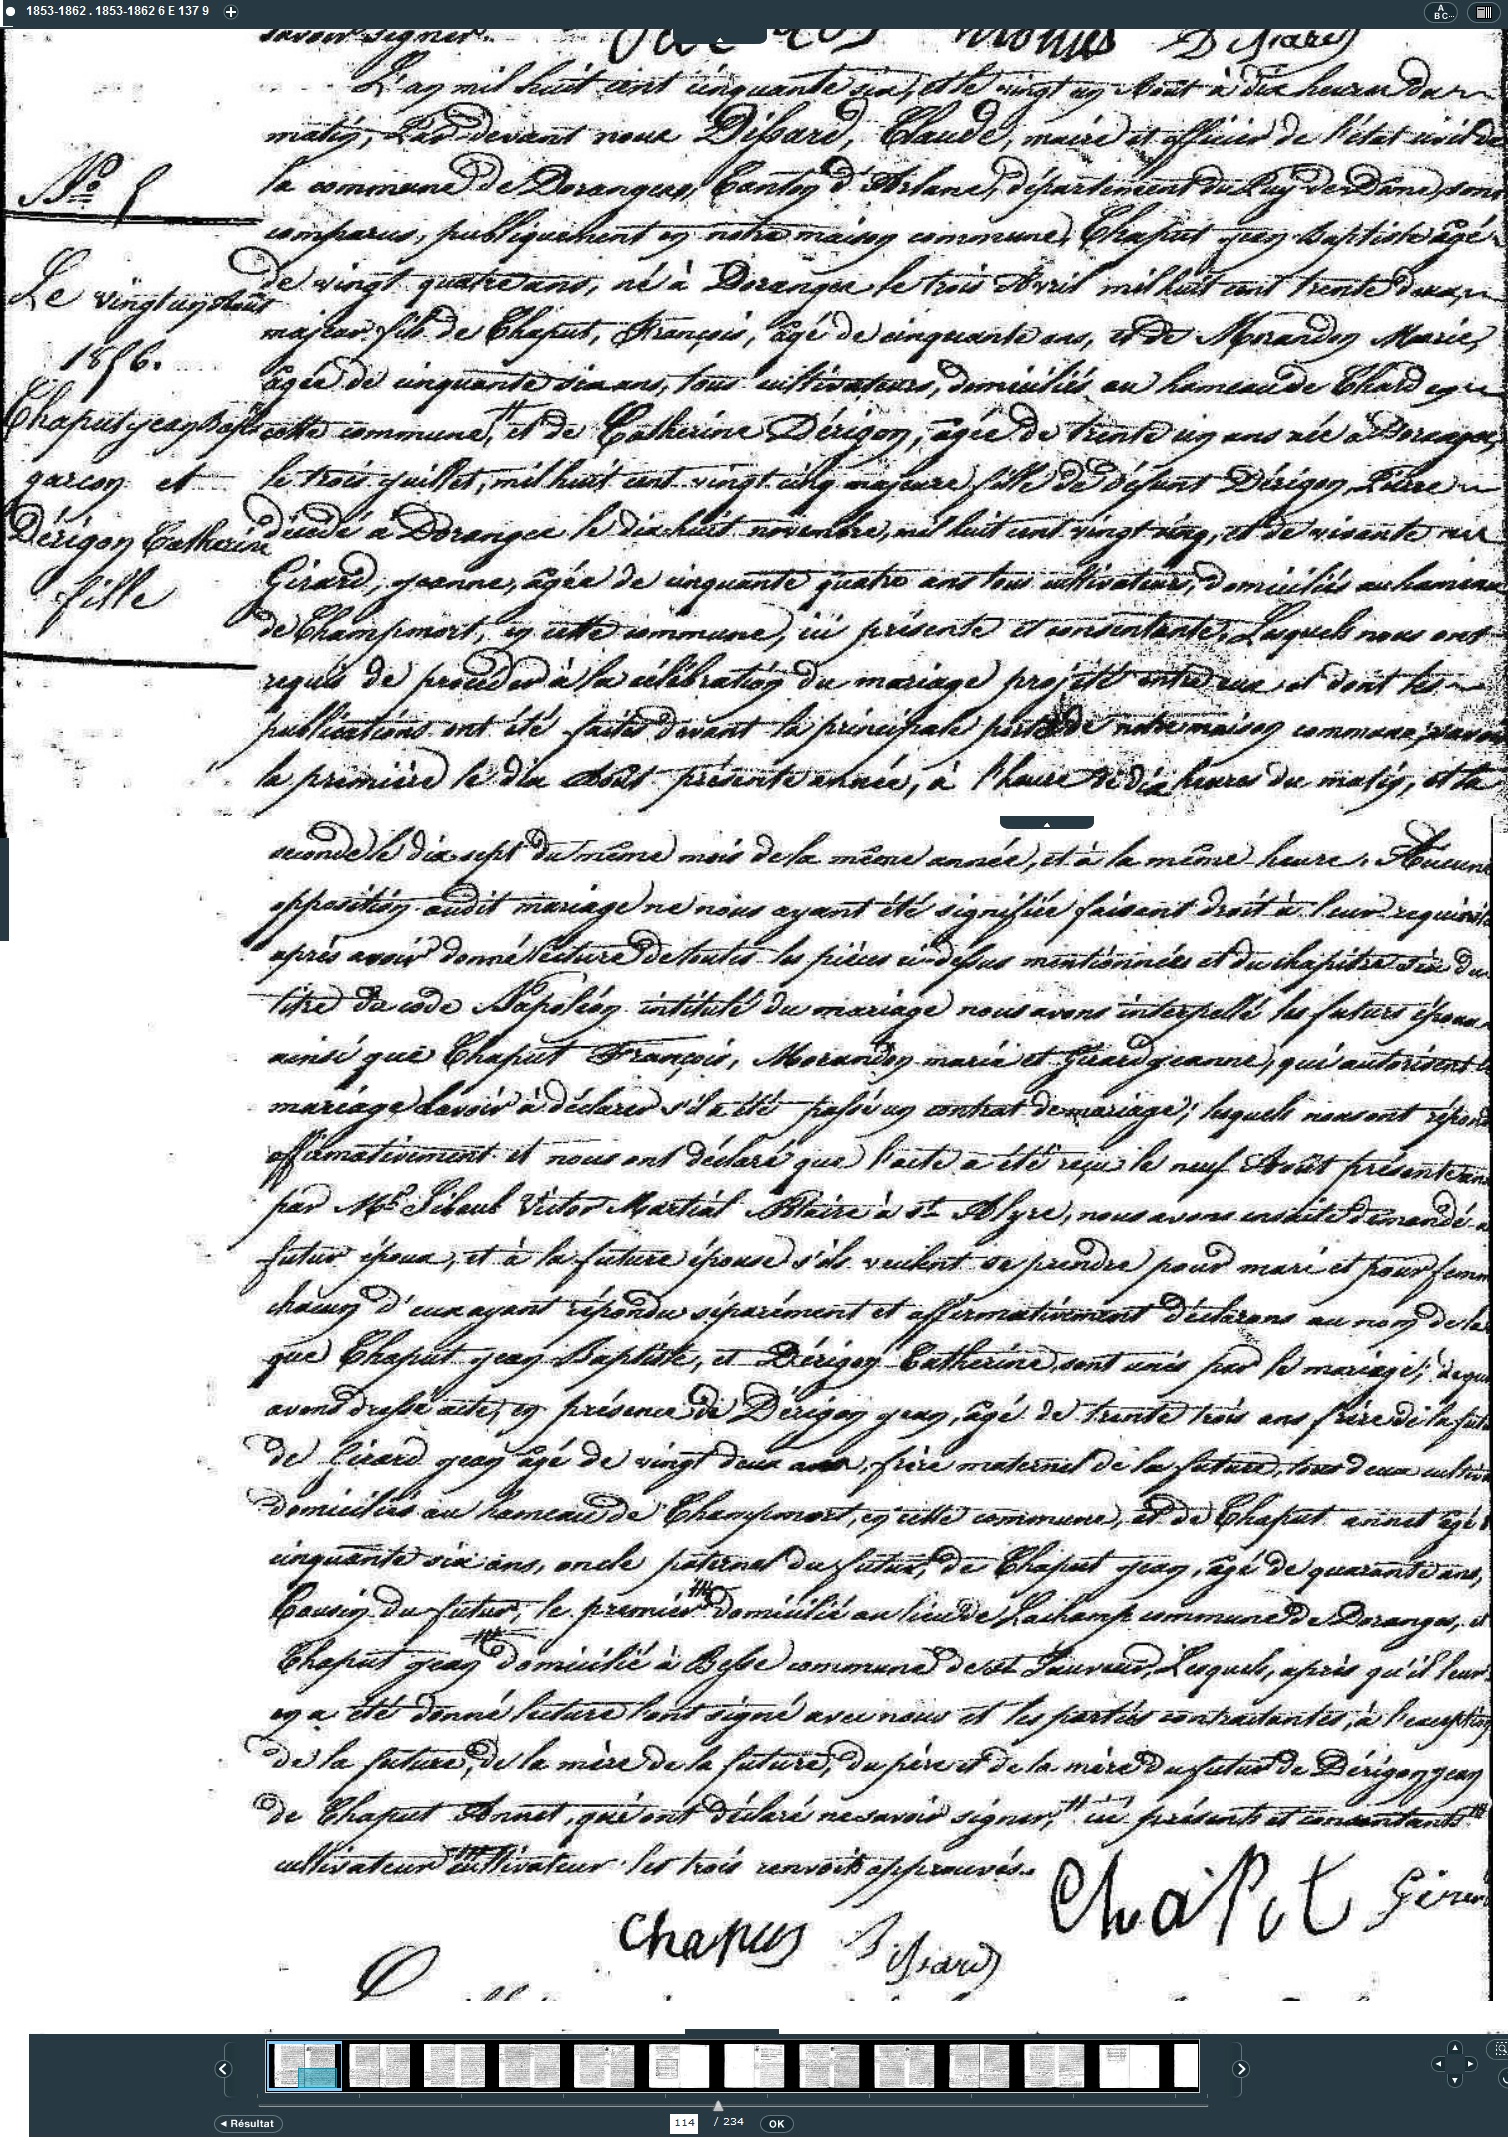 1853-1862 . 1853-1862 6 E 137 9
A
B C...
savoir signer.
L'an mil huit cent cinquante six, et le vingt un Août à dix heures du
matin, Par devant nous Dissard, Claude, maire et officier de l'état civil de
la commune de Doranges, Canton d'Arlanc, département du Puy de Dôme, sont
comparus, publiquement en notre maison commune, Chaput jean Baptiste âgé
de vingt quatre ans, né à Doranges le trois Avril mil huit cent trente deux,
majeur fils de Chaput, François, âgé de cinquante ans, et de Morandon Marie,
âgée de cinquante six ans, tous cultivateurs, domiciliés au hameau de Chard en
cette commune, et de Catherine Dérigon, âgée de trente un ans née à Doranges,
le trois juillet, mil huit cent vingt cinq majeure fille de défunt Dérigon Pierre
décédé à Doranges le dix huit novembre, mil huit cent vingt cinq, et de vivante
Girard, jeanne, âgée de cinquante quatre ans tous cultivateurs, domiciliés au hameau
de Champmort, en cette commune, ici présente et consentante. Lesquels nous ont
requis de procéder à la célébration du mariage projété entre eux et dont les
publications ont été faites devant la principale porte de notre maison commune, savoir
la première le dix Août présente année, à l'heure de dix heures du matin, et la
N° 5
Le vingt un Août
1856.
Chaput jean Bapte
garçon et
Dérigon Catherine
fille
seconde le dix sept du même mois de la même année, et à la même heure. Aucune
opposition audit mariage ne nous ayant été signifiée faisant droit à leur
après avoir donné lecture de toutes les pièces ci-dessus mentionnées et du chapitre six du
titre du code Napoléon intitulé du mariage nous avons interpellé les futurs époux
ainsi que Chaput François, Morandon marie et Girard jeanne, qui autorisent le
mariage d'avoir à déclarer s'il a été passé un contrat de mariage; lesquels nous ont
affirmativement et nous ont déclaré que l'acte a été reçu le neuf Août présente
par Me Victor Martial Notaire à St Alyre, nous avons ensuite demandé
futur époux, et à la future épouse s'ils veulent se prendre pour mari et pour
chacun d'eux ayant répondu séparément et affirmativement déclarons au nom de la
que Chaput jean Baptiste, et Dérigon Catherine, sont unis par le mariage; de
avons dressé acte, en présence de Dérigon jean, âgé de trente trois ans frère de la
de Girard jean âgé de vingt deux ans, frère maternel de la future, tous deux
domiciliés au hameau de Champmort, en cette commune, et de Chaput annet âgé
cinquante six ans, oncle paternel du futur, de Chaput jean, âgé de quarante ans,
Cousin du futur, le premier domicilié au lieu de Lachamp commune de Doranges, et
Chaput jean domicilié à Besse commune de St Sauveur, Lesquels, après qu'il leur
en a été donné lecture l'ont signé avec nous et les parties contractantes, à l'exception
de la future, de la mère de la future, du père et de la mère du futur de Dérigon jean
de Chaput Annet, qui ont déclaré ne savoir signer, ici présents et consentants
cultivateur cultivateur les trois renvois approuvés.
Chaput
Girard
Chapus
Dissard
Résultat
114
/ 234
OK